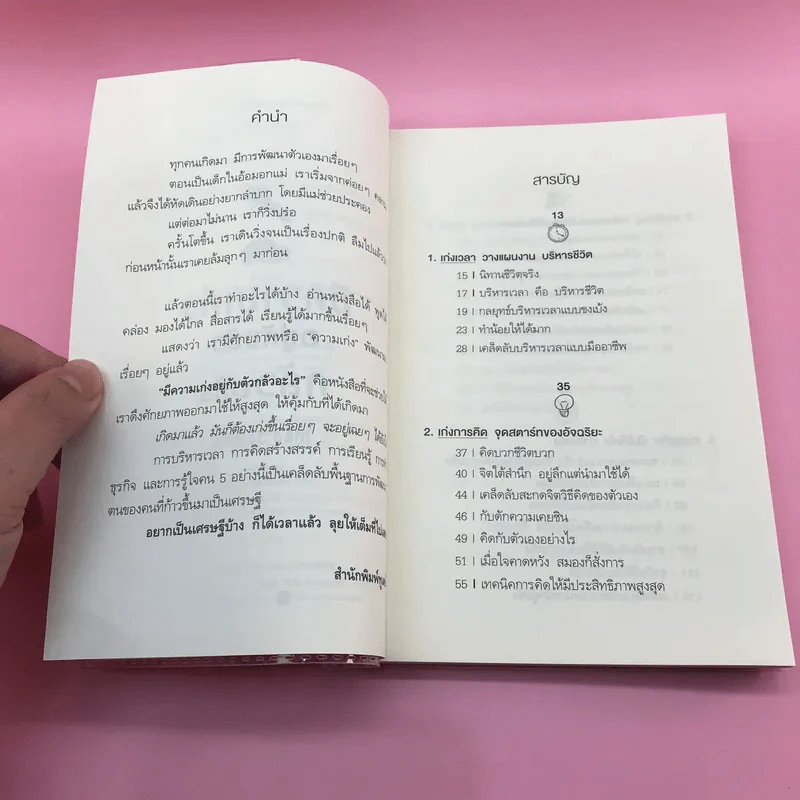 คำนำ
ทุกคนเกิดมา มีการพัฒนาตัวเองมาเรื่อยๆ
ตอนเป็นเด็กในอ้อมอกแม่ เราเริ่มจากค่อยๆ
แล้วจึงได้หัดเดินอย่างยากลำบาก โดยมีแม่ช่วยประคอง
แต่ต่อมาไม่นาน เราก็วิ่งปร๋อ
ครั้นโตขึ้น เราเดินวิ่งจนเป็นเรื่องปกติ ลืมไปแล้ว
ก่อนหน้านั้นเราเคยล้มลุกๆ มาก่อน
แล้วตอนนี้เราทำอะไรได้บ้าง อ่านหนังสือได้
คล่อง มองได้ไกล สื่อสารได้ เรียนรู้ได้มากขึ้นเรื่อยๆ
แสดงว่า เรามีศักยภาพหรือ “ความเก่ง”
เรื่อยๆ อยู่แล้ว
“มีความเก่งอยู่กับตัวกลัวอะไร” คือหนังสือที่จะช่วย
เราดึงศักยภาพออกมาใช้ให้สูงสุด ให้คุ้มกับที่ได้เกิดมา
เกิดมาแล้ว มันก็ต้องเก่งขึ้นเรื่อยๆ จะอยู่เฉยๆ
การบริหารเวลา การคิดสร้างสรรค์ การเรียนรู้
ธุรกิจ และการรู้ใจคน 5 อย่างนี้เป็นเคล็ดลับพื้นฐานการพัฒนา
ตนของคนที่ก้าวขึ้นมาเป็นเศรษฐี
อยากเป็นเศรษฐีบ้าง ก็ได้เวลาแล้ว ลุยให้เต็มที่
สำนักพิมพ์
สารบัญ
13
1. เก่งเวลา วางแผนงาน บริหารชีวิต
15 | นิทานชีวิตจริง
17 | บริหารเวลา คือ บริหารชีวิต
19 | กลยุทธ์บริหารเวลาแบบขงเบ้ง
23 | ทำน้อยให้ได้มาก
28 | เคล็ดลับบริหารเวลาแบบมืออาชีพ
35
2. เก่งการคิด จุดสตาร์ทของอัจฉริยะ
37 | คิดบวกชีวิตบวก
40 | จิตใต้สำนึก อยู่ลึกแต่นำมาใช้ได้
44 | เคล็ดลับสะกดจิตวิธีคิดของตัวเอง
46 | กับดักความเคยชิน
49 | คิดกับตัวเองอย่างไร
51 | เมื่อใจคาดหวัง สมองก็สั่งการ
55 | เทคนิคการคิดให้มีประสิทธิภาพสูงสุด